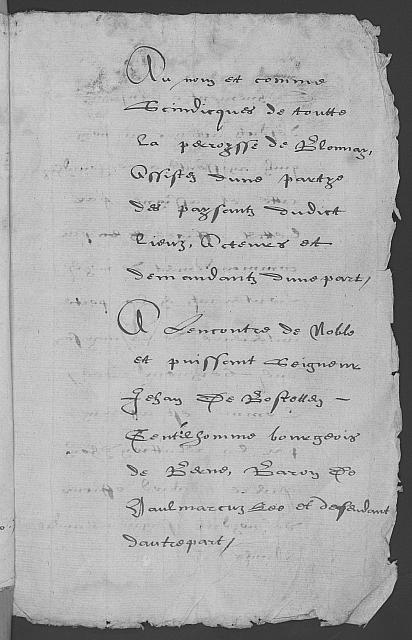 Au nom et comme
Scindicques de toutte
la perroysse de Blonnay,
Assistez dune partye
des paysantz dudict
lieuz, Acteurs et
demandantz dune part /
A Lencontre de Noble
et puissant Seigneur
Jehan De Bostetten –
Gentilhomme bourgeois
de Berne, Baron De
Vaulmarcuz Ree et defendant
dautrepart /